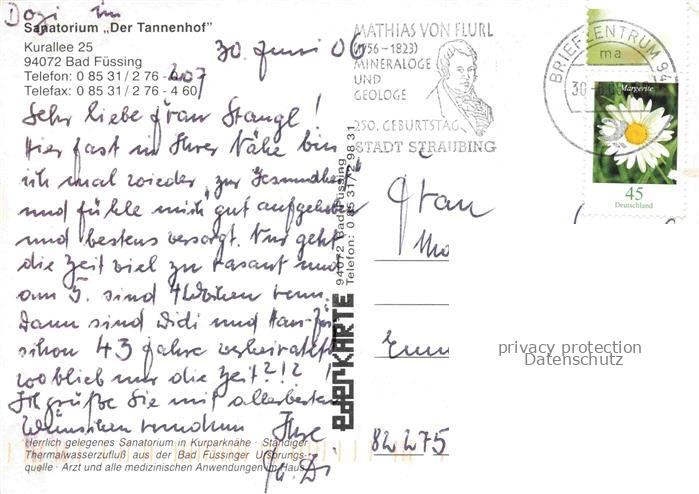 Dozi im
Sanatorium „Der Tannenhof"
Kurallee 25
94072 Bad Füssing
Telefon: 0 85 31 / 2 76 - 407
Telefax: 0 85 31 / 2 76 - 4 60
30. Juni 06
Sehr liebe Frau Stangl!
Hier fast in Ihrer Nähe bin
ich mal wieder "zur Gesundheit"
und fühle mich gut aufgehoben
und bestens versorgt. Nur geht
die Zeit viel zu rasant und
am 5. sind 4 Wochen rum.
Dann sind Didi und
schon 43 Jahre verheiratet
wo blieb nur die Zeit?!?!
Ich grüße Sie mit allerbesten
Wünschen rundum Ihre
Herrlich gelegenes Sanatorium in Kurparknähe · Ständiger
Thermalwasserzufluß aus der Bad Füssinger Ursprungs-
quelle · Arzt und alle medizinischen Anwendungen im Haus
94072 Bad Füssing
Telefon: 0 85 31 / 2 98 31
ederKARTE
MATHIAS VON FLURL
(1756 – 1823)
MINERALOGE
UND
GEOLOGE
250. GEBURTSTAG
STADT STRAUBING
BRIEFZENTRUM 94
ma
30
Margerite
45
Deutschland
Frau
82275
privacy protection
Datenschutz